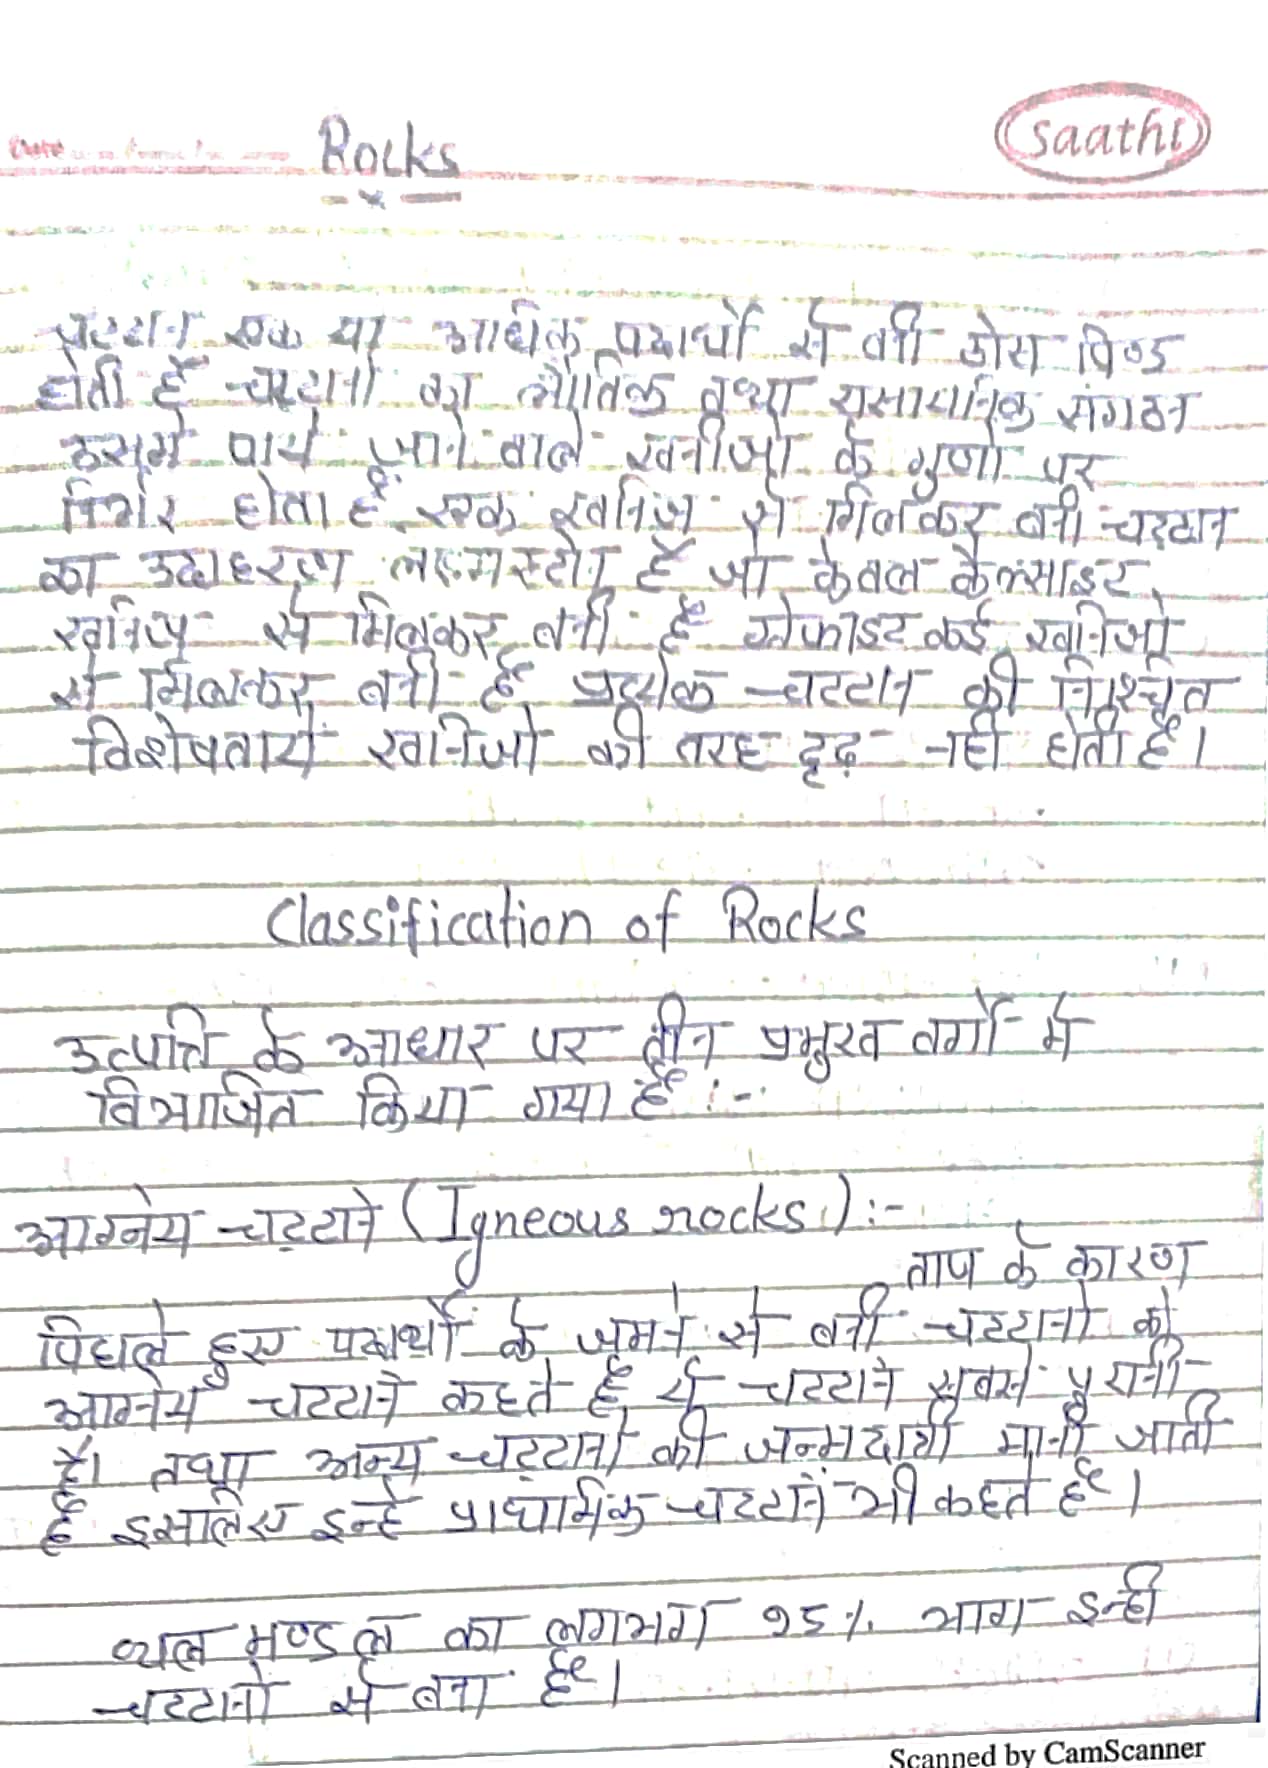 Rocks
saathi
चट्टान एक या अधिक पदार्थो से बनी ठोस पिण्ड
होती हैं चट्टानो का भौतिक तथा रासायनिक संगठन
उसमे पाये जाने वाले खनीजो के गुणो पर
निर्भर होता है एक खनिज से मिलकर बनी चट्टान
का उदाहरण लाइमस्टोन है जो केवल कैल्साइट
खनिज से मिलकर बनी है कई खनिजो
से मिलकर बनी है प्रत्येक चटटान की निश्चित
विशेषतायें खनिजो की तरह दृढ़ नही होती है।
Classification of Rocks
उत्पत्ति के आधार पर तीन प्रमुख वर्गो मे
विभाजित किया गया है :-
आग्नेय चट्टाने (Igneous rocks) :-
ताप के कारण
पिघले हुए पदार्थो के जमने से बनी चटटानो को
आग्नेय चटटाने कहते है ये चटटाने सबसे पुरानी
है। तथा अन्य चट्टानो की जन्मदात्री मानी जाती
है इसलिए इन्हे प्राथमिक चटटानें भी कहते है।
थल मण्डल का लगभग ९५% भाग इन्ही
चटटानो से बना है।
Scanned by CamScanner